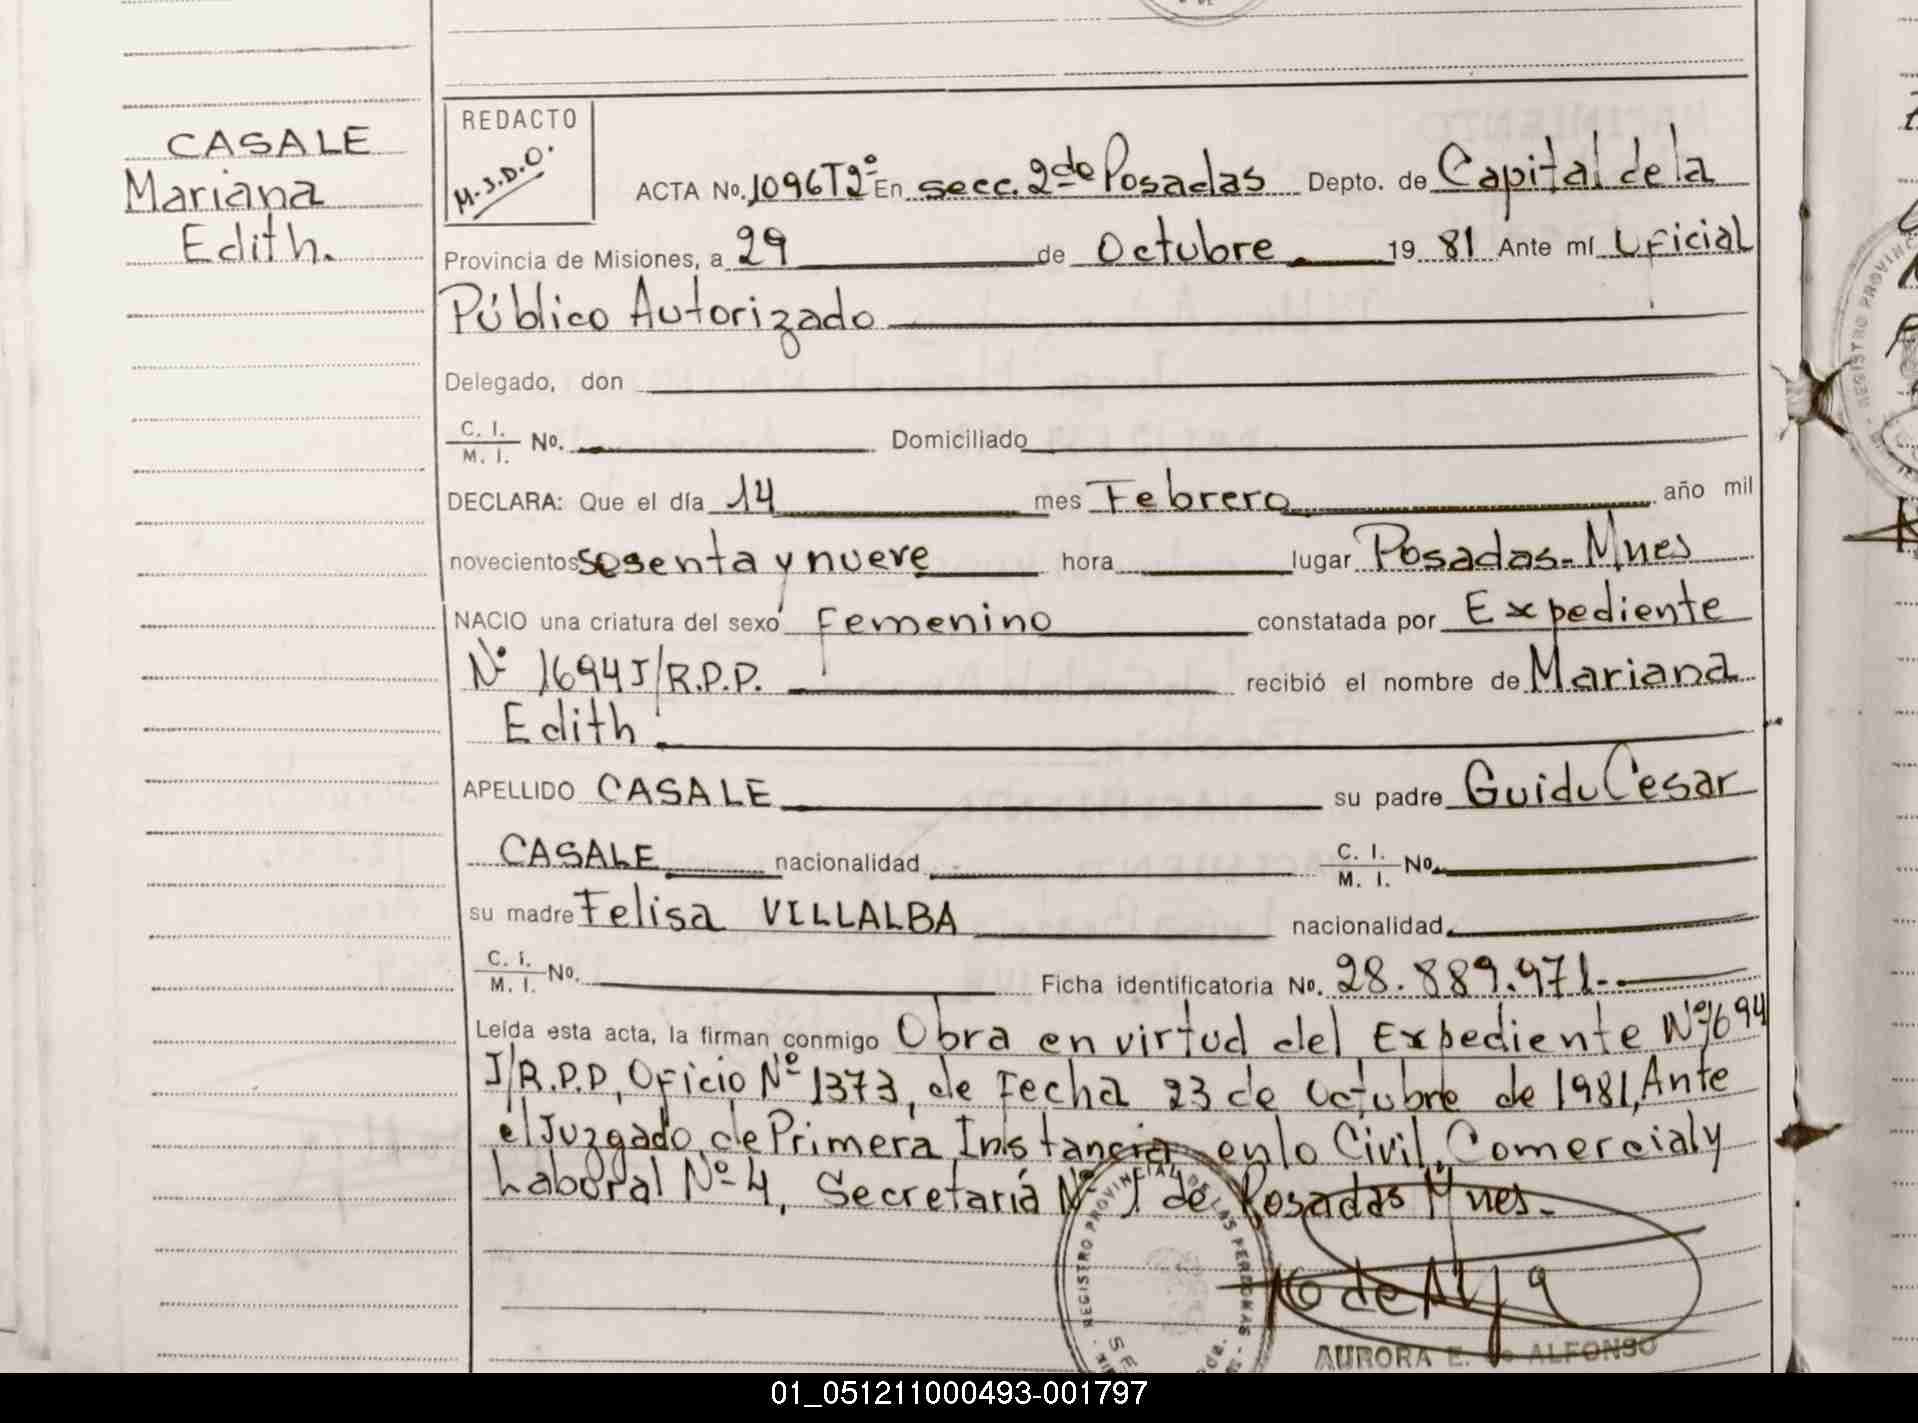 CASALE
Mariana
Edith.
REDACTO
M.J.D.O.
ACTA No. 1096T2º En secc. 2da Posadas Depto. de Capital de la
Provincia de Misiones, a 29 de Octubre 19 81 Ante mí Oficial
Público Autorizado
Delegado, don
C. I. / M. I. No. Domiciliado
DECLARA: Que el día 14 mes Febrero año mil
novecientos sesenta y nueve hora lugar Posadas-Mnes
NACIO una criatura del sexo Femenino constatada por Expediente
Nº 1694 J/R.P.P. recibió el nombre de Mariana
Edith
APELLIDO CASALE su padre Guido Cesar
CASALE nacionalidad C. I. / M. I. No.
su madre Felisa VILLALBA nacionalidad
C. I. / M. I. No. Ficha identificatoria No. 28.889.971.-
Leída esta acta, la firman conmigo Obra en virtud del Expediente Nº1694
J/R.P.P, Oficio Nº 1373, de Fecha 23 de Octubre de 1981, Ante
el Juzgado de Primera Instancia en lo Civil, Comercial y
Laboral Nº 4, Secretaría Nº 1 de Posadas Mnes.-
REGISTRO PROVINCIAL DE LAS PERSONAS
AURORA E. de ALFONSO
REGISTRO PROVINC
01_051211000493-001797